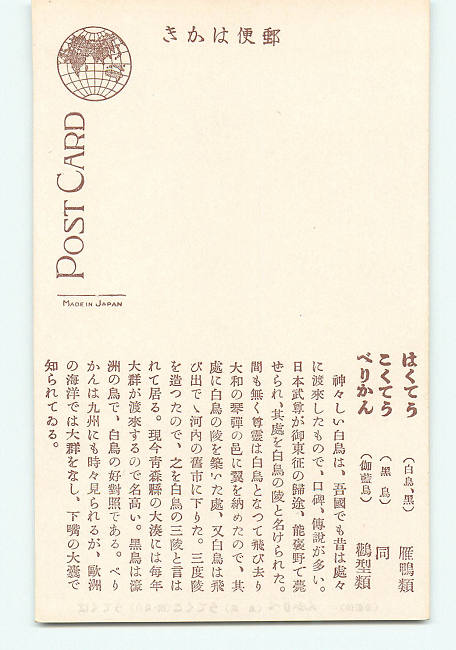 郵便はかき
POST CARD
MADE IN JAPAN
はくてう（白鳥、黑）雁鴨類
こくてう（黑鳥）同
ぺりかん（伽藍鳥）鸛型類
神々しい白鳥は、吾國でも昔は處々
に渡來したもので、口碑、傳說が多い。
日本武尊が御東征の歸途、能褒野で薨
せられ、其處を白鳥の陵と名けられた。
間も無く尊靈は白鳥となつて飛び去り
大和の琴彈の邑に翼を納めたので、其
處に白鳥の陵を築いた處、又白鳥は飛
び出でゝ河內の舊市に下りた。三度陵
を造つたので、之を白鳥の三陵と言は
れて居る。現今靑森縣の大湊には每年
大群が渡來するので名高い。黑鳥は濠
洲の鳥で、白鳥の好對照である。ぺり
かんは九州にも時々見られるが、歐洲
の海洋では大群をなし、下嘴の大囊で
知られてゐる。